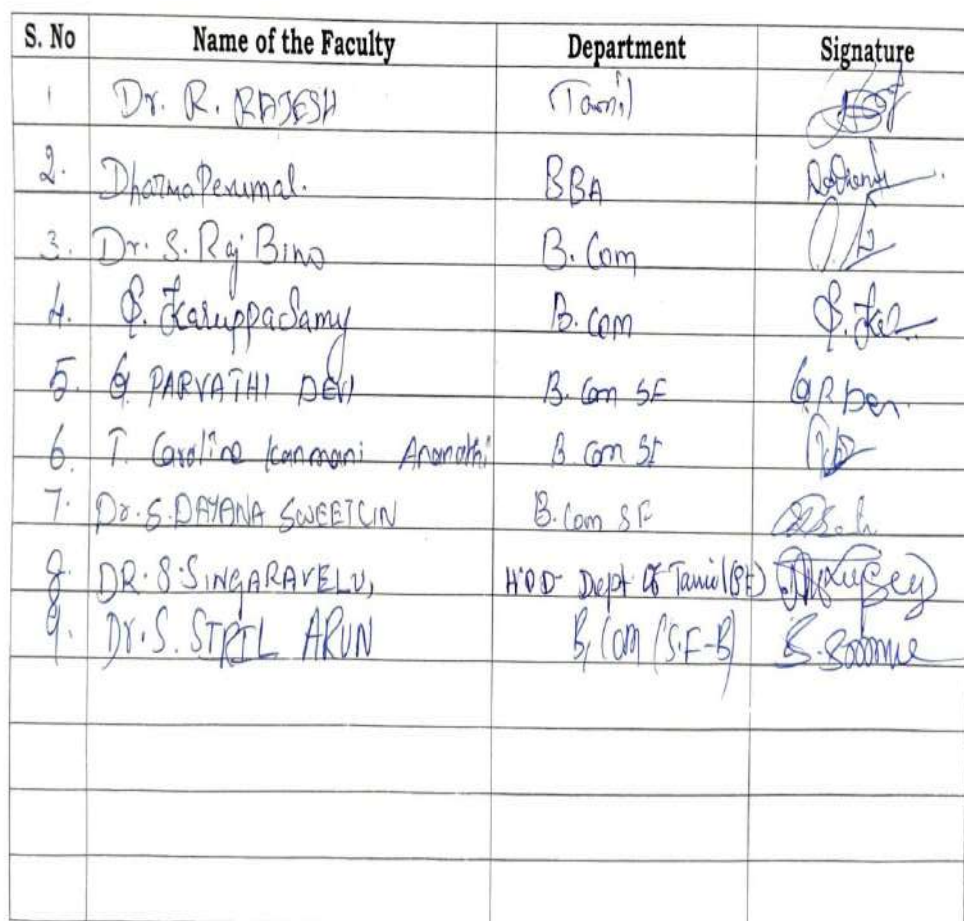 S. No Name of the Faculty Department Signature
1 Dr. R. RAJESH Tamil
2. Dharma Perumal. BBA
3. Dr. S. Raj Bino B. Com
4. S. Karuppasamy B. com S. Kar
5. G PARVATHI DEVI B. Com SF G.P Devi.
6. T. Caroline Kanmani Ananthi B com SF
7. Dr. S. DAYANA SWEETLIN B. Com SF
8. DR. S. SINGARAVELU, HOD Dept of Tamil (SF)
9. Dr. S. STRIL ARUN B, Com (S.F-B)